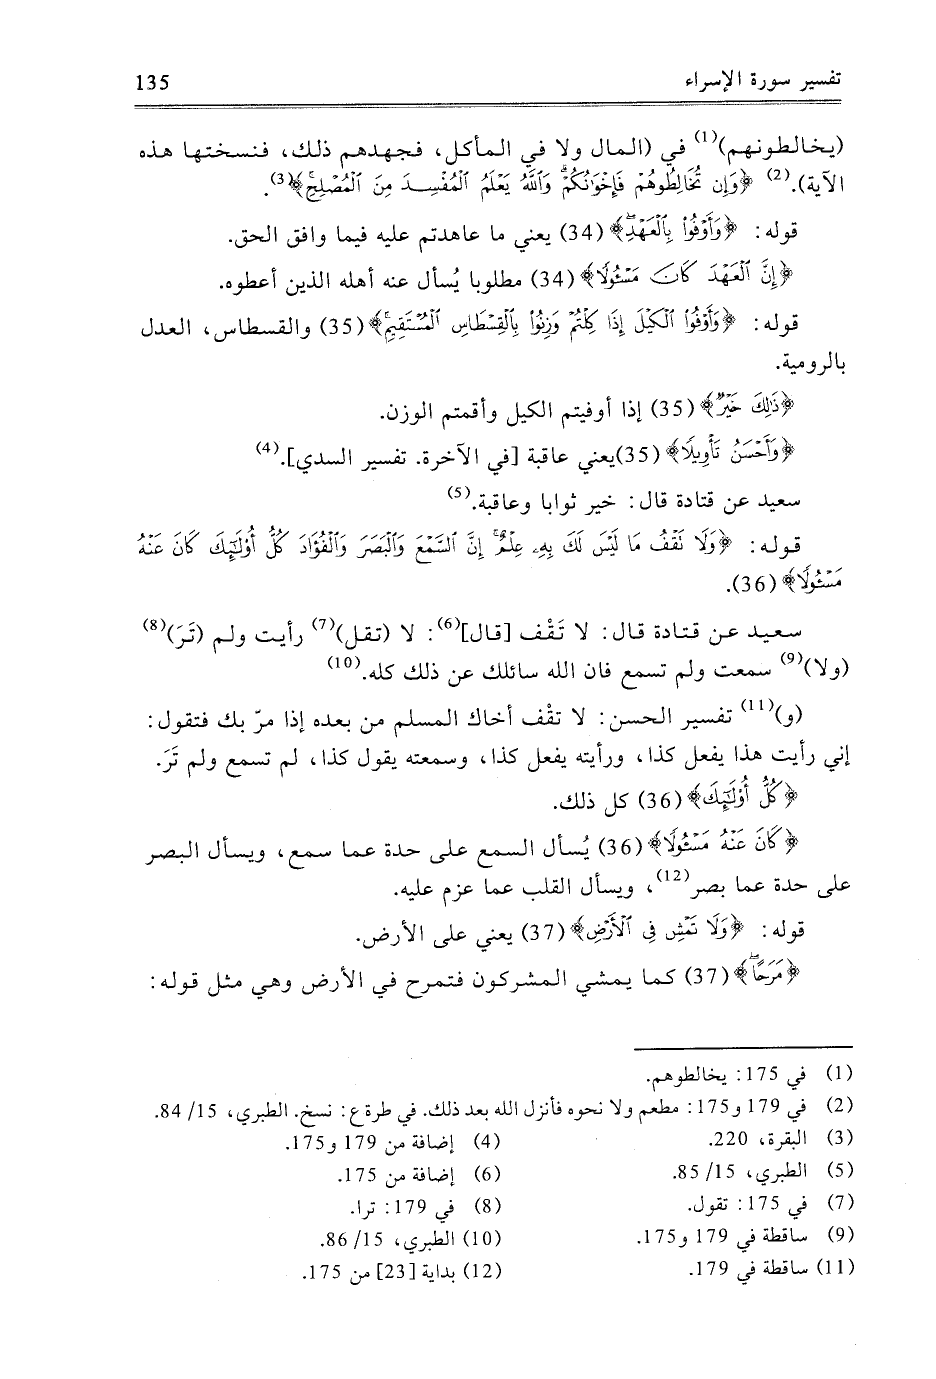 تفسير سورة الإسراء 135
(يخالطونهم)(1) في (المال ولا في المأكل، فجهدهم ذلك، فنسختها هذه
الآية).(2) ﴿وَإِن تُخَالِطُوهُمْ فَإِخْوَانُكُمْ وَاللَّهُ يَعْلَمُ الْمُفْسِدَ مِنَ الْمُصْلِحِ﴾(3).
قوله: ﴿وَأَوْفُوا بِالْعَهْدِ﴾ (34) يعني ما عاهدتم عليه فيما وافق الحق.
﴿إِنَّ الْعَهْدَ كَانَ مَسْئُولًا﴾ (34) مطلوبا يُسأل عنه أهله الذين أعطوه.
قوله: ﴿وَأَوْفُوا الْكَيْلَ إِذَا كِلْتُمْ وَزِنُوا بِالْقِسْطَاسِ الْمُسْتَقِيمِ﴾ (35) والقسطاس، العدل
بالرومية.
﴿ذَٰلِكَ خَيْرٌ﴾ (35) إذا أوفيتم الكيل وأقمتم الوزن.
﴿وَأَحْسَنُ تَأْوِيلًا﴾ (35)يعني عاقبة [في الآخرة. تفسير السدي].(4)
سعيد عن قتادة قال: خير ثوابا وعاقبة.(5)
قوله: ﴿وَلَا تَقْفُ مَا لَيْسَ لَكَ بِهِ عِلْمٌ إِنَّ السَّمْعَ وَالْبَصَرَ وَالْفُؤَادَ كُلُّ أُولَٰئِكَ كَانَ عَنْهُ
مَسْئُولًا﴾ (36).
سعيد عن قتادة قال: لا تَقْف [قال](6): لا (تقل)(7) رأيت ولم (تَرَ)(8)
(ولا)(9) سمعت ولم تسمع فان الله سائلك عن ذلك كله.(10)
(و)(11) تفسير الحسن: لا تقْف أخاك المسلم من بعده إذا مرّ بك فتقول:
إني رأيت هذا يفعل كذا، ورأيته يفعل كذا، وسمعته يقول كذا، لم تسمع ولم تَرَ.
﴿كُلُّ أُولَٰئِكَ﴾ (36) كل ذلك.
﴿كَانَ عَنْهُ مَسْئُولًا﴾ (36) يُسأل السمع على حدة عما سمع، ويسأل البصر
على حدة عما بصر(12)، ويسأل القلب عما عزم عليه.
قوله: ﴿وَلَا تَمْشِ فِي الْأَرْضِ﴾ (37) يعني على الأرض.
﴿مَرَحًا﴾ (37) كما يمشي المشركون فتمرح في الأرض وهي مثل قوله:
(1) في 175: يخالطوهم.
(2) في 179 و175: مطعم ولا نحوه فأنزل الله بعد ذلك. في طرة ع: نسخ. الطبري، 15/ 84.
(3) البقرة، 220. (4) إضافة من 179 و175.
(5) الطبري، 15/ 85. (6) إضافة من 175.
(7) في 175: تقول. (8) في 179: ترا.
(9) ساقطة في 179 و175. (10) الطبري، 15/ 86.
(11) ساقطة في 179. (12) بداية [23] من 175.